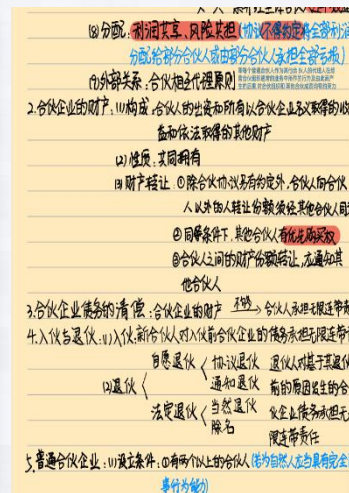 (8)分配:利润共享、风险共担(协议不得约定将全部利润
分配给部分合伙人或由部分合伙人承担全部亏损)
(9)外部关系:合伙相互代理原则
2.合伙企业的财产:(1)构成:合伙人的出资和所有以合伙企业名义取得的收
益和依法取得的其他财产
(2)性质:共同拥有
(3)财产转让:①除合伙协议另有约定外,合伙人向合伙
人以外的人转让份额须经其他合伙人同
②同等条件下,其他合伙人有优先购买权
③合伙人之间的财产份额转让,应通知其
他合伙人
3.合伙企业债务的清偿:合伙企业的财产 不够→ 合伙人承担无限连带责
4.入伙与退伙:(1)入伙:新合伙人对入伙前合伙企业的债务承担无限连带
自愿退伙 协议退伙 退伙人对基于其退伙
(2)退伙 通知退伙 前的原因发生的合
法定退伙 当然退伙 伙企业债务承担无
除名 限连带责任
5.普通合伙企业:(1)设立条件:①有两个以上的合伙人(若为自然人应当具有完全
事行为能力)